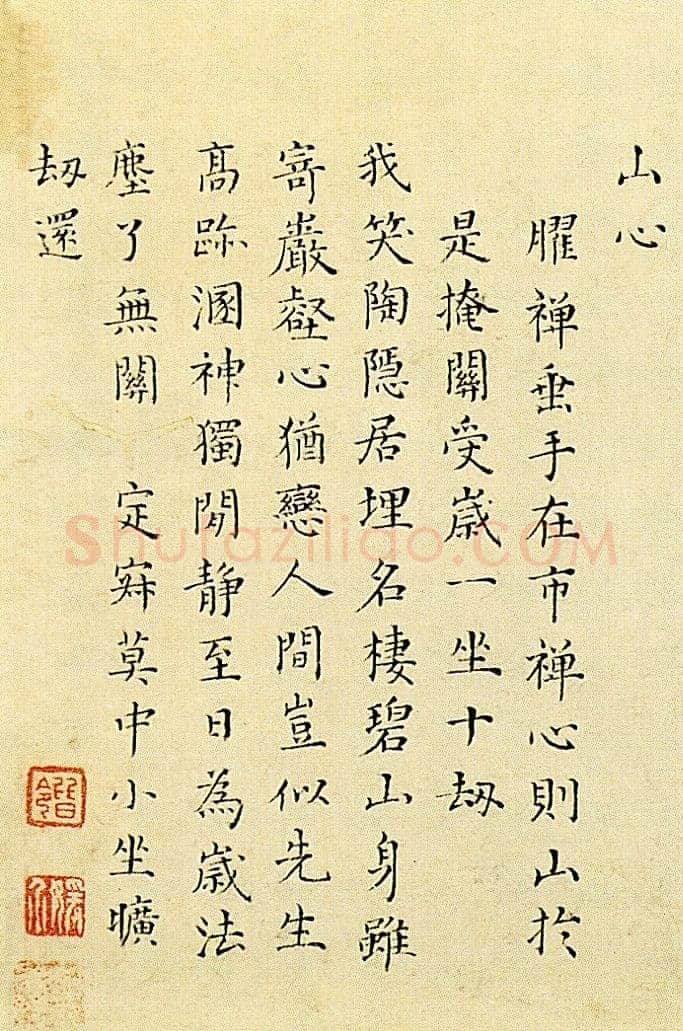 山心
曜禅垂手在市禅心則山於
是掩關受歲一坐十劫
我笑陶隱居埋名棲碧山身雖
寄巖壑心猶戀人間豈似先生
高跡溷神獨閒靜至日為歲法
塵了無關 定寂莫中小坐曠
劫還
Shufaziliao.COM